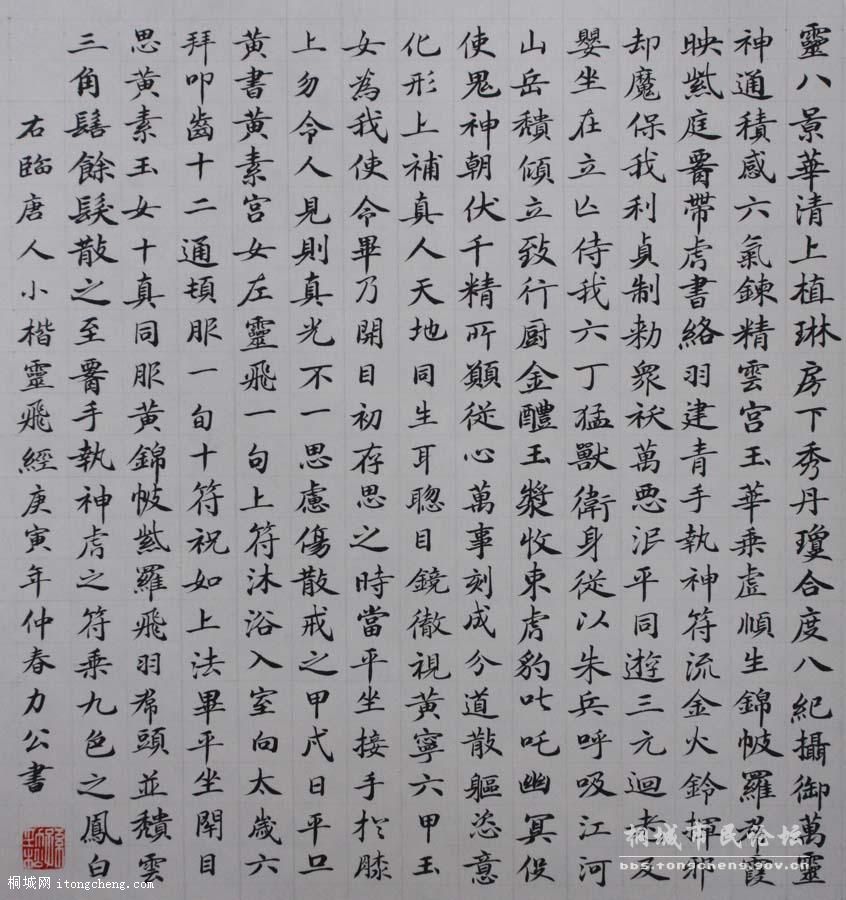 靈八景華清上植琳房下秀丹瓊合度八紀攝御萬靈
神通積感六氣鍊精雲宮玉華乘虛順生錦帔羅帬霞
映紫庭腎帶虎書絡羽建青手執神符流金火鈴揮邪
却魔保我利貞制勑衆祅萬惡泯平同遊三元迴老反
嬰坐在立亡侍我六丁猛獸衛身從以朱兵呼吸江河
山岳穨傾立致行厨金醴玉漿收束虎豹叱吒幽冥役
使鬼神朝伏千精所願從心萬事刻成分道散軀恣意
化形上補真人天地同生耳聰目鏡徹視黃寧六甲玉
女為我使令畢乃開目初存思之時當平坐接手於膝
上勿令人見則真光不一思慮傷散戒之甲戌日平旦
黃書黃素宮女左靈飛一旬上符沐浴入室向太歲六
拜叩齒十二通頓服一旬十符祝如上法畢平坐閉目
思黃素玉女十真同服黃錦帔紫羅飛羽帬頭並穨雲
三角髻餘髮散之至腎手執神虎之符乘九色之鳳白
右臨唐人小楷靈飛經庚寅年仲春力公書
桐城市民论坛
bbs.tongcheng.gov.cn
桐城网 itongcheng.com